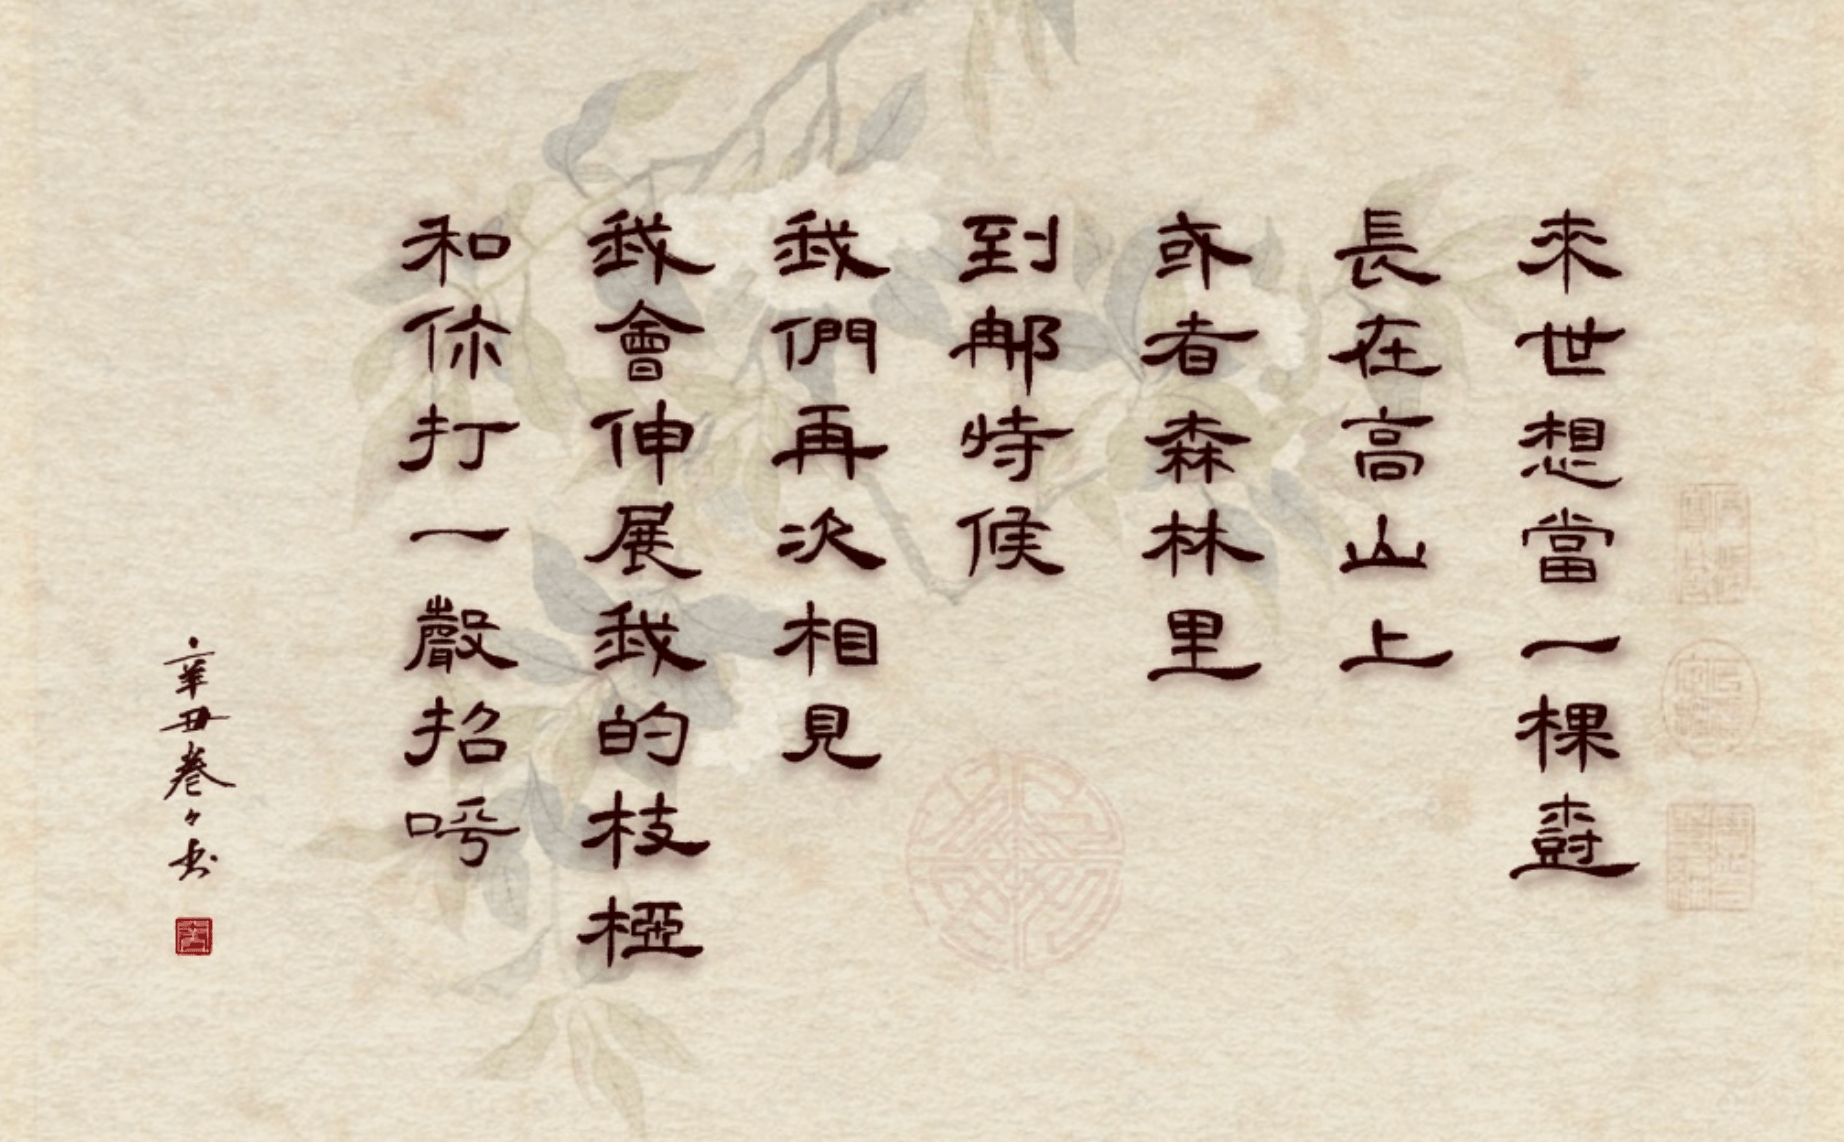 來世想當一棵樹
長在高山上
或者森林里
到那時候
我們再次相見
我會伸展我的枝椏
和你打一聲招呼
辛丑卷々书